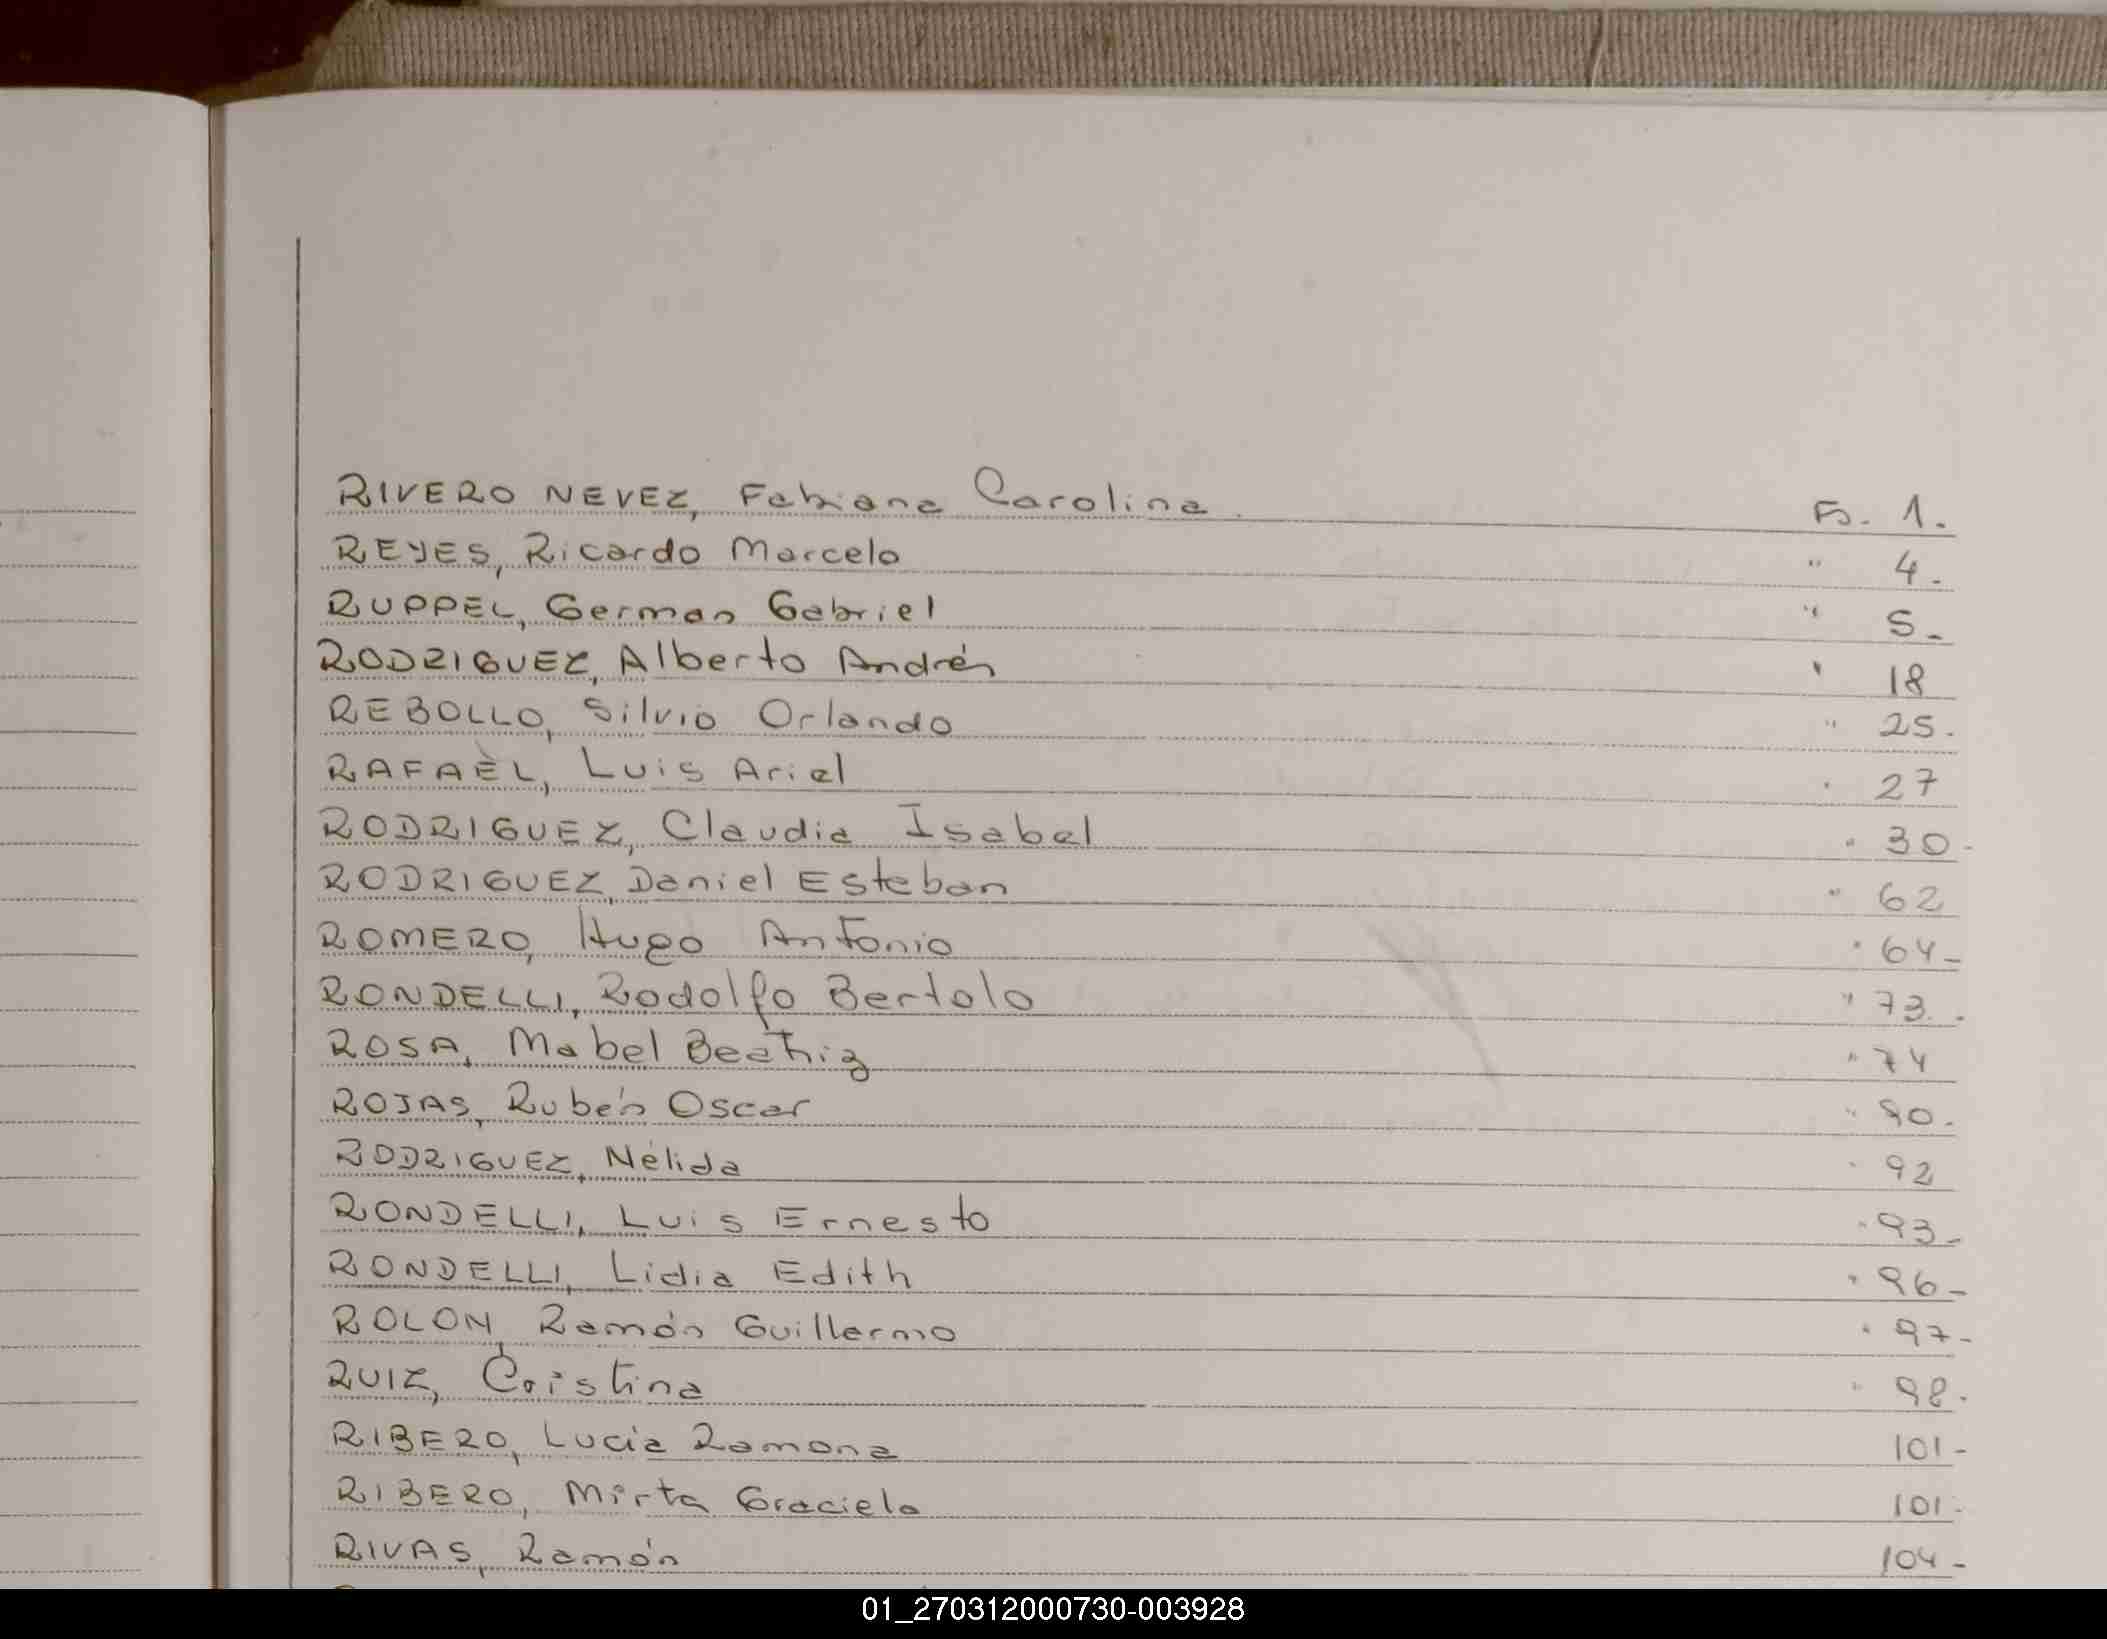 RIVERO NEVEZ, Fabiana Carolina. Fs. 1.
REYES, Ricardo Marcelo " 4.
RUPPEL, German Gabriel " 5-
RODRIGUEZ, Alberto Andrés " 18
REBOLLO, Silvio Orlando " 25.
RAFAEL, Luis Ariel " 27
RODRIGUEZ, Claudia Isabel " 30-
RODRIGUEZ, Daniel Esteban " 62
ROMERO, Hugo Antonio " 64-
RONDELLI, Rodolfo Bertolo " 73.
ROSA, Mabel Beatriz " 74
ROJAS, Rubén Oscar " 90.
RODRIGUEZ, Nélida " 92
RONDELLI, Luis Ernesto " 93-
RONDELLI, Lidia Edith " 96-
ROLON, Ramón Guillermo " 97-
RUIZ, Cristina " 98.
RIBERO, Lucia Ramona 101-
RIBERO, Mirta Graciela 101-
RIVAS, Ramón 104-
01_270312000730-003928